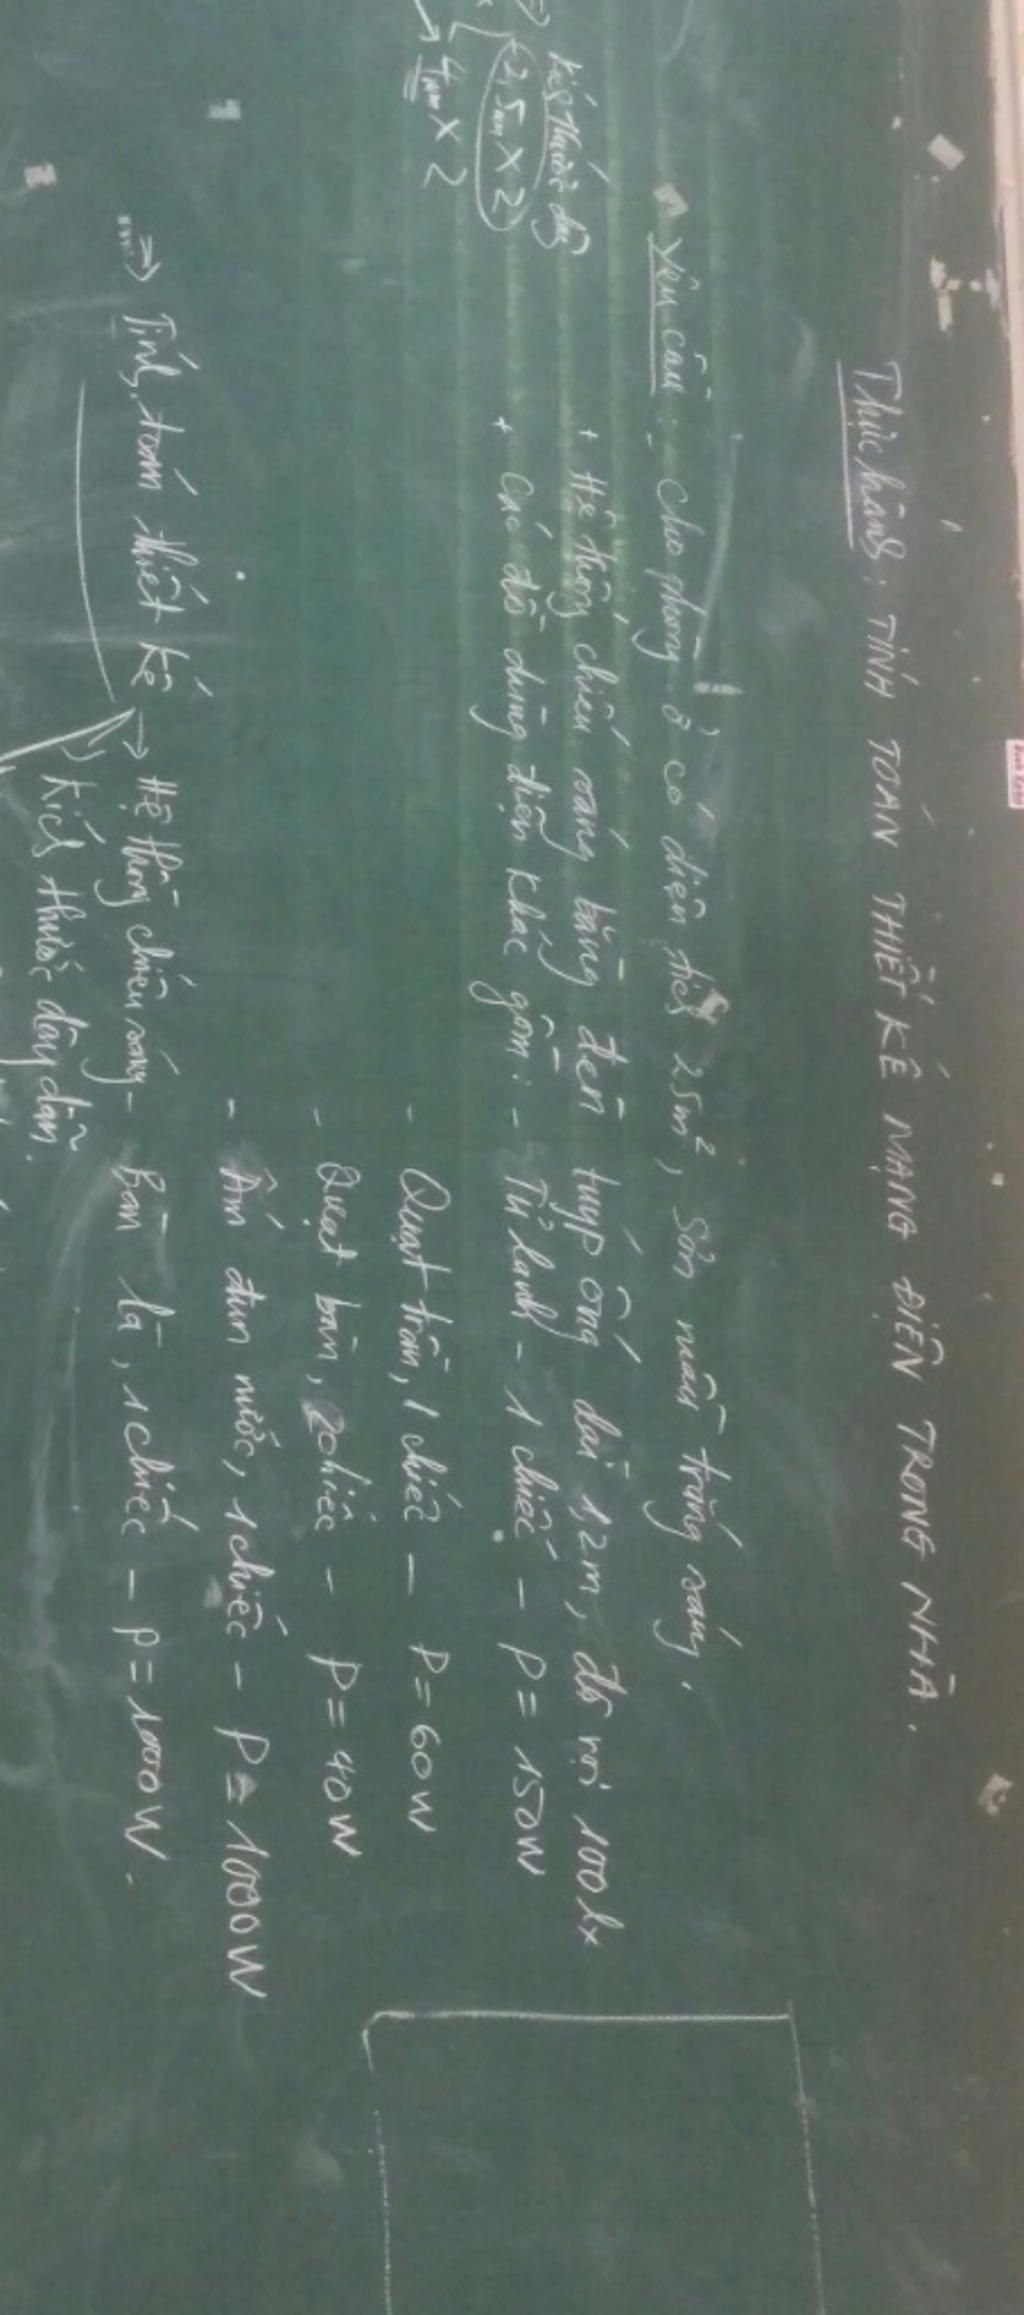 Thực hành: TÍNH TOÁN THIẾT KẾ MẠNG ĐIỆN TRONG NHÀ.
Yêu cầu: - Cho phòng ở có diện tích 25m², sơn màu trắng sáng.
+ Hệ thống chiếu sáng bằng đèn tuýp ống dài 1,2m, độ rọi 100lx
+ Các đồ dùng điện khác gồm: - Tủ lạnh - 1 chiếc - P = 150W
- Quạt trần, 1 chiếc - P = 60W
- Quạt bàn, 2chiếc - P = 40W
- Ấm đun nước, 1chiếc - P = 1000W
- Bàn là, 1chiếc - P = 1000W.
=> Tính toán thiết kế -> Hệ thống chiếu sáng
-> Kích thước dây dẫn.
Kích thước dây
2,5mm x 2
-> 4mm x 2